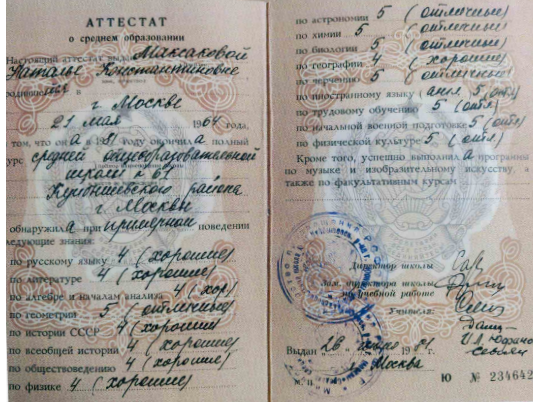 АТТЕСТАТ
о среднем образовании
Настоящий аттестат выдан Максаковой
Наталье Константиновне
родившейся в
г. Москве
21 мая 1964 года,
том, что он а в 81 году окончил а полный
курс средней общеобразовательной
школы № 67
Куйбышевского района
г. Москвы
обнаружил а при примерном поведении
следующие знания:
по русскому языку 4 (хорошие)
по литературе 4 (хорошие)
по алгебре и началам анализа 4 (хор)
по геометрии 5 (отличные)
по истории СССР 4 (хорошие)
по всеобщей истории 4 (хорошие)
по обществоведению 4 (хорошие)
по физике 4 (хорошие)
по астрономии 5 (отличные)
по химии 5 (отличные)
по биологии 5 (отличные)
по географии 4 (хорошие)
по черчению 5 (отличные)
по иностранному языку (англ) 5 (отл)
по трудовому обучению 5 (отл)
по начальной военной подготовке 5 (отл)
по физической культуре 5 (отл)
Кроме того, успешно выполнил а программу
по музыке и изобразительному искусству, а
также по факультативным курсам
Директор школы
Зам. директора школы
по учебной работе
Учителя:
Выдан 26 1981 г.
г. Москва
М. П.
Ю № 234642